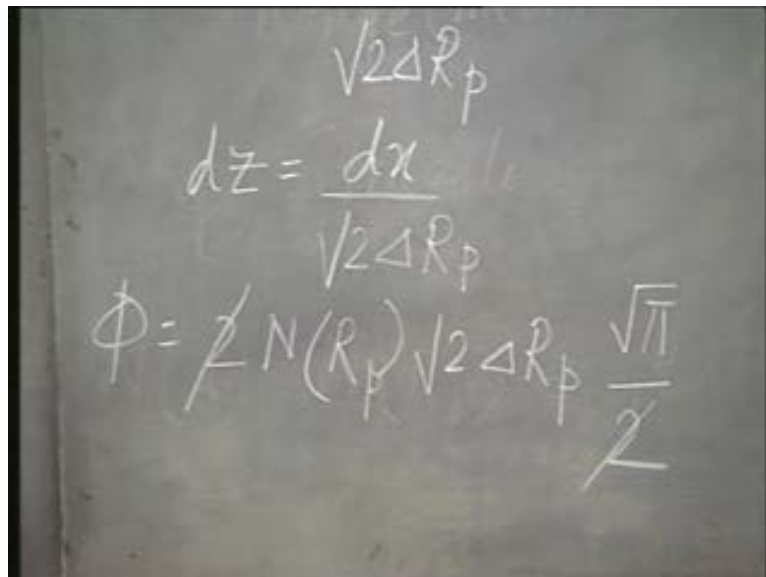 √2ΔRp
dz = dx / √2ΔRp
Φ = 2 N(Rp) √2ΔRp √π / 2